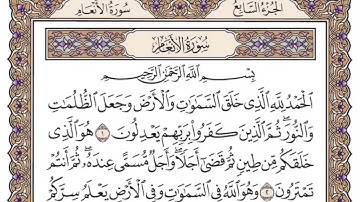 سُورَةُ الأَنْعَامِ الجُزْءُ السَّابِعُ
سُورَةُ الأَنْعَامِ
بِسْمِ ٱللَّهِ ٱلرَّحْمَٰنِ ٱلرَّحِيمِ
ٱلْحَمْدُ لِلَّهِ ٱلَّذِي خَلَقَ ٱلسَّمَٰوَٰتِ وَٱلْأَرْضَ وَجَعَلَ ٱلظُّلُمَٰتِ
وَٱلنُّورَ ۖ ثُمَّ ٱلَّذِينَ كَفَرُوا۟ بِرَبِّهِمْ يَعْدِلُونَ ١ هُوَ ٱلَّذِي
خَلَقَكُم مِّن طِينٍ ثُمَّ قَضَىٰٓ أَجَلًا ۖ وَأَجَلٌ مُّسَمًّى عِندَهُۥ ۖ ثُمَّ أَنتُمْ
تَمْتَرُونَ ٢ وَهُوَ ٱللَّهُ فِي ٱلسَّمَٰوَٰتِ وَفِي ٱلْأَرْضِ يَعْلَمُ سِرَّكُمْ